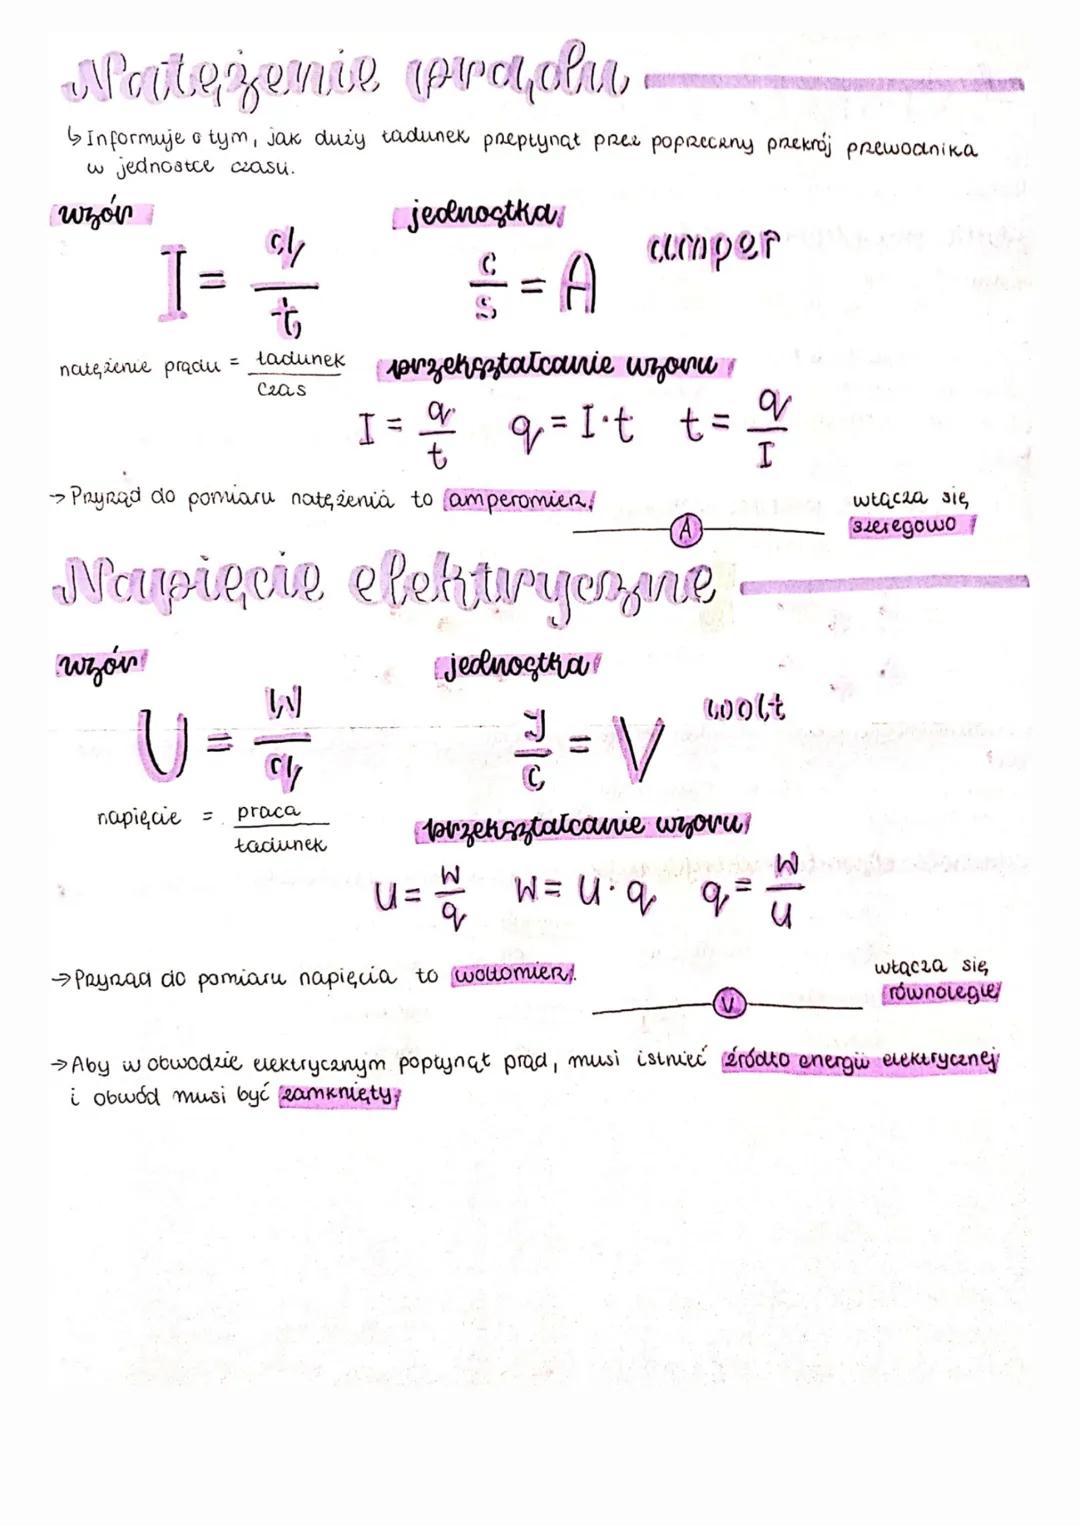 Natężenie prądu
↳ Informuje o tym, jak duży ładunek przepłynął przez poprzeczny przekrój przewodnika
w jednostce czasu.
wzór
jednostka
I = q/t
C/s = A amper
natężenie prądu = ładunek/czas
przekształcanie wzoru
I = q/t q = I·t t = q/I
→ Przyrząd do pomiaru natężenia to amperomierz.
włącza się
szeregowo
A
Napięcie elektryczne
wzór
jednostka
U = W/q
J/C = V wolt
napięcie = praca/ładunek
przekształcanie wzoru
U = W/q W = U·q q = W/U
→ Przyrząd do pomiaru napięcia to woltomierz.
włącza się
równolegle
V
→ Aby w obwodzie elektrycznym popłynął prąd, musi istnieć źródło energii elektrycznej
i obwód musi być zamknięty